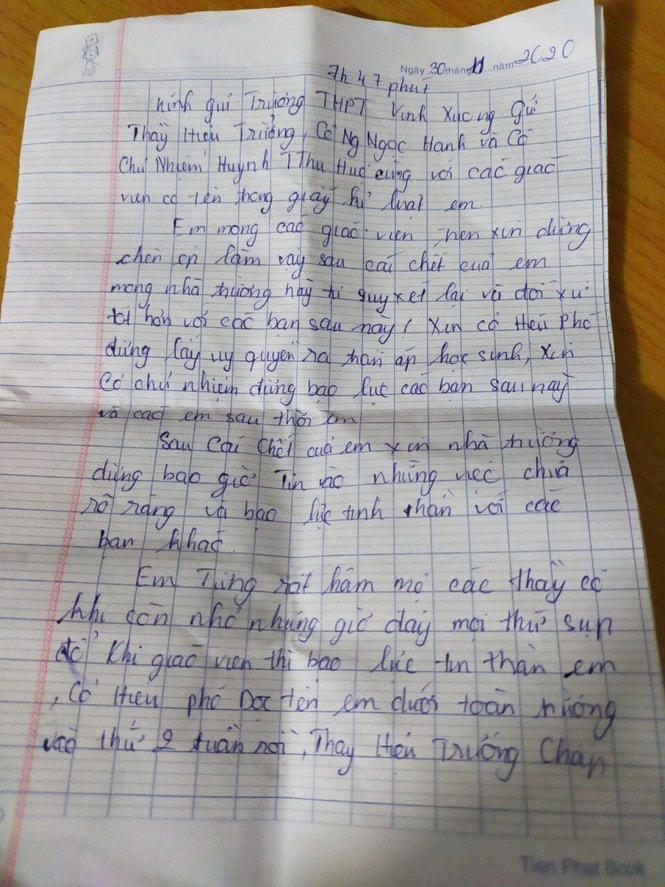 Ngày 30 tháng 11 năm 2020
7h 47 phút
Kính gửi Trường THPT Vĩnh Xương Gửi
Thầy Hiệu Trưởng, Cô Ng Ngọc Hạnh và Cô
Chủ Nhiệm Huỳnh T Thu Huệ cùng với các giáo
viên có tên trong giấy kỉ luật em.
Em mong các giáo viên trên xin đừng
chèn ép làm vay sau cái chết của em
mong nhà trường hãy tự suy xét lại và đối xử
tốt hơn với các bạn sau này! Xin cô Hiệu Phó
đừng lấy uy quyền ra trấn áp học sinh, xin
Cô chủ nhiệm đừng bạo lực các bạn sau này
và các em sau thời em
Sau Cái Chết của em xin nhà trường
đừng bao giờ Tin vào những việc chưa
rõ ràng và bạo lực tinh thần với các
bạn khác.
Em Từng rất hâm mộ các thầy cô
khi còn nhỏ nhưng giờ đây mọi thứ sụp
đổ Khi giáo viên thì bạo lực tin thần em
, Cô Hiệu phó Đọc tên em dưới toàn trường
vào thứ 2 tuần rồi, Thầy Hiệu Trưởng Chấp
Tien Phat Book